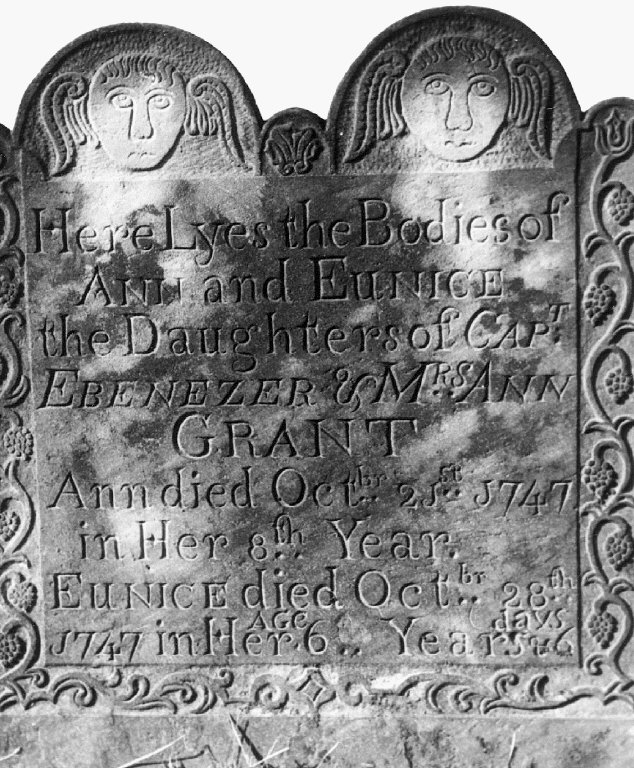 Here Lyes the Bodies of
ANN and EUNICE
the Daughters of CAPT.
EBENEZER & MRS. ANN
GRANT
Ann died Octbr. 21st. 1747
in Her 8th Year.
EUNICE died Octbr. 28th
1747 in Her AGE 6.. Years & 6 days